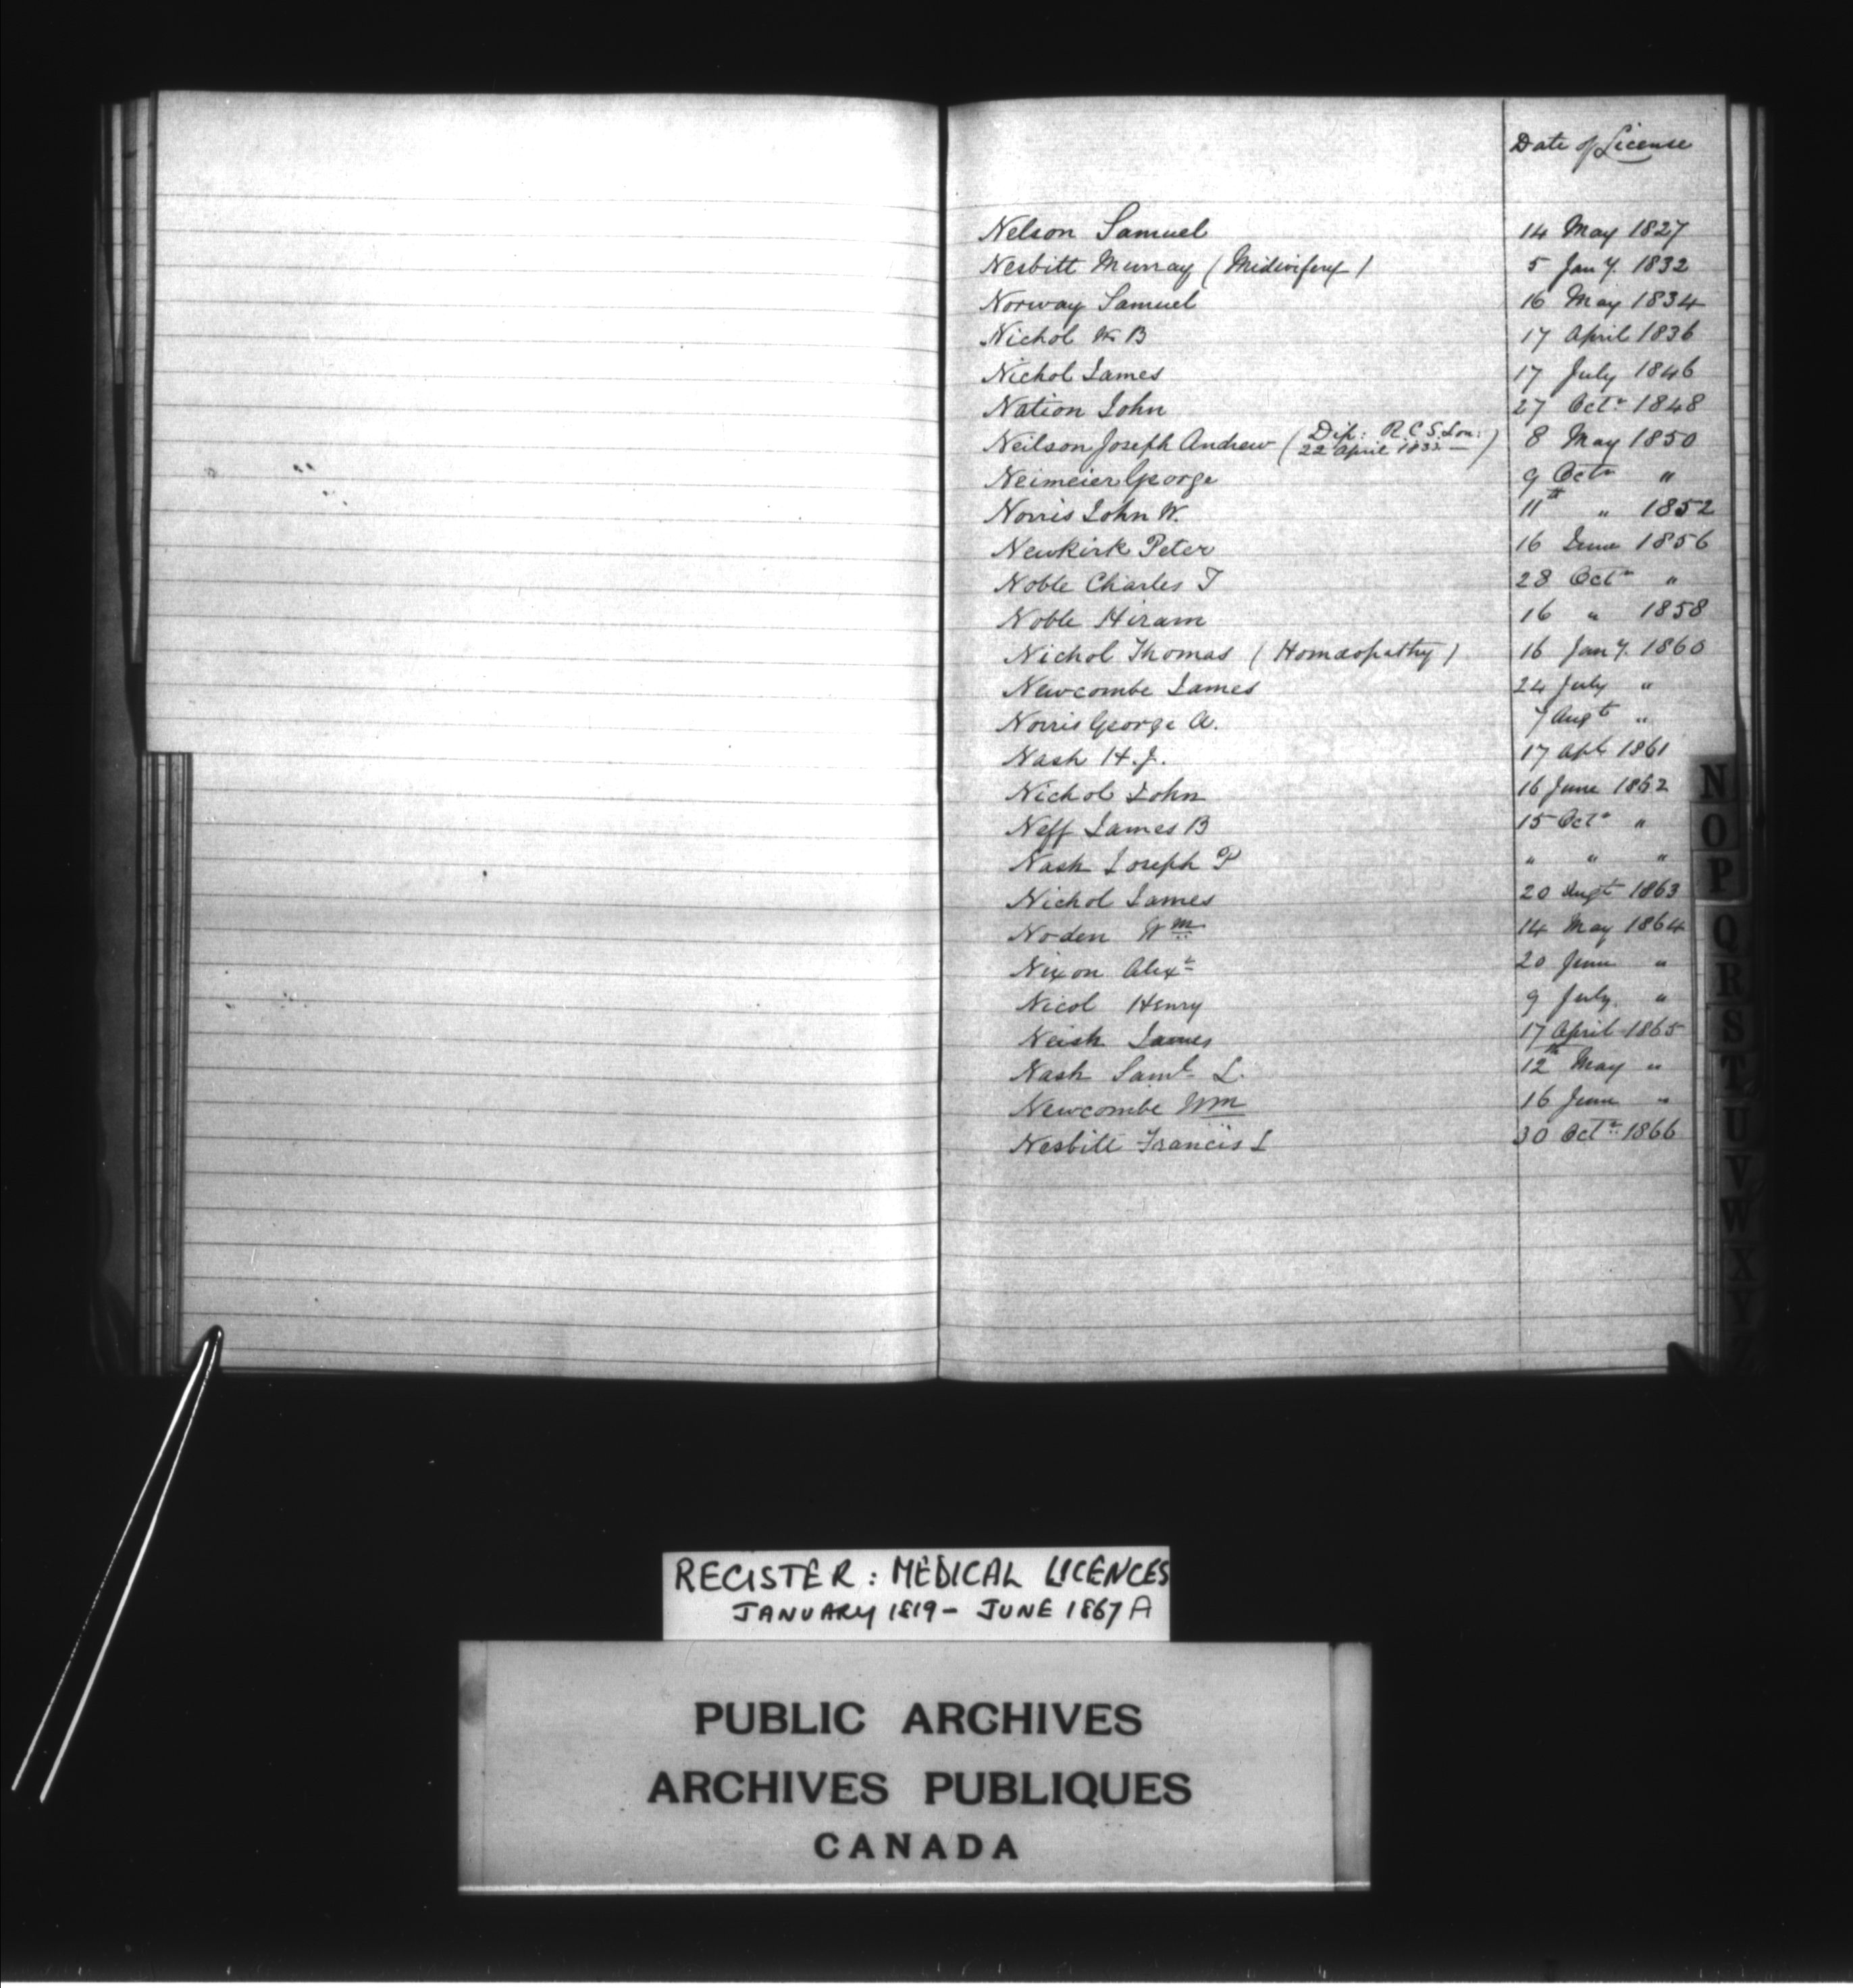 Date of License
Nelson Samuel 14 May 1827
Nesbitt Murray (Midwifery) 5 Jany. 1832
Norway Samuel 16 May 1834
Nichol W B 17 April 1836
Nichol James 17 July 1846
Nation John 27 Octr 1848
Neilson Joseph Andrew (Dip: R.C.S. Lon: 22 April 183 —) 8 May 1850
Neimeier George 9 Octr "
Norris John W. 11th " 1852
Newkirk Peter 16 June 1856
Noble Charles T 28 Octr "
Noble Hiram 16 " 1858
Nichol Thomas (Homœopathy) 16 Jany. 1860
Newcombe James 24 July "
Norris George A. 7 Augt "
Nash H. J. 17 Apl 1861
Nichol John 16 June 1862
Neff James B 15 Octr "
Nash Joseph P " " "
Nichol James 20 Augt 1863
Noden Wm 14 May 1864
Nixon Alexr 20 June "
Nicol Henry 9 July "
Neish James 17 April 1865
Nash Saml L. 12th May "
Newcombe Wm 16 June "
Nesbitt Francis L 30 Octr 1866
N
O
P
Q
R
S
T
U
V
W
X
Y
Z
REGISTER: MEDICAL LICENCES
JANUARY 1819 – JUNE 1867 A
PUBLIC ARCHIVES
ARCHIVES PUBLIQUES
CANADA